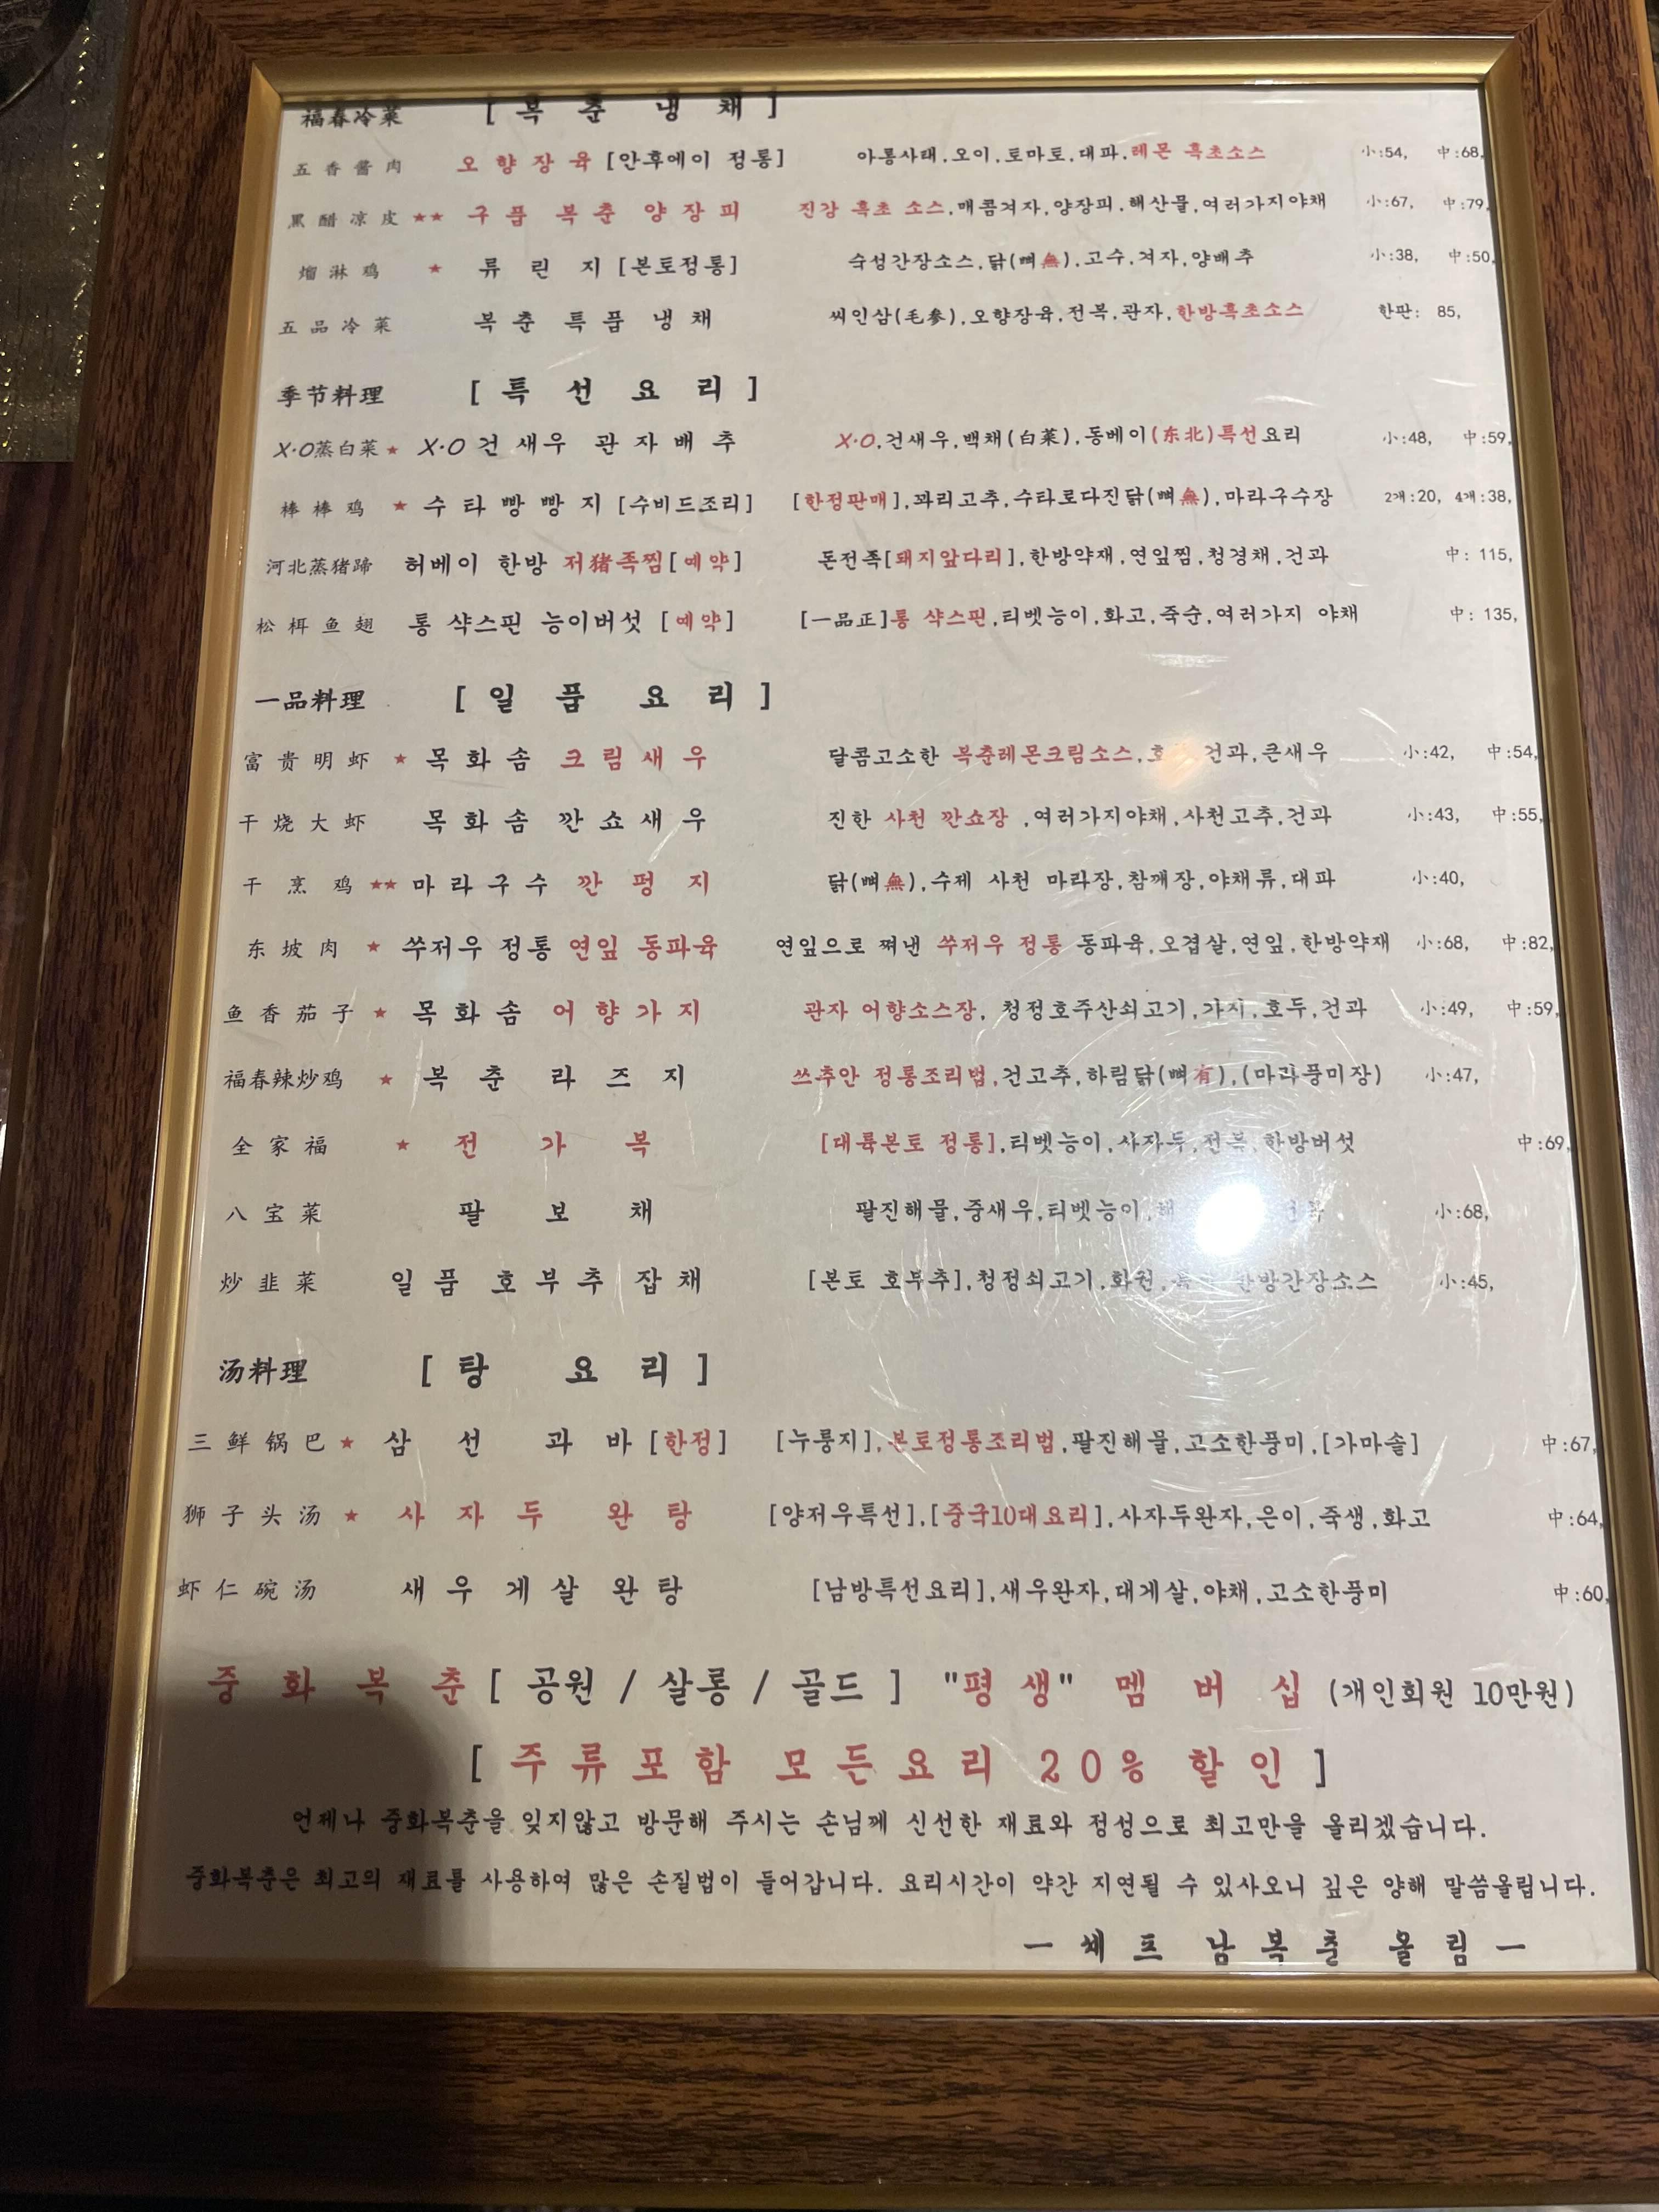 福春冷菜 [ 복 춘 냉 채 ]
五香醬肉 오향장육 [안후에이 정통] 아롱사태.오이.토마토.대파.레몬 흑초소스 小:54, 中:68,
黑醋凉皮 ★★ 구품 복춘 양장피 진강 흑초 소스.매콤겨자.양장피.해산물.여러가지야채 小:67, 中:79,
熘淋鸡 ★ 류린지 [본토정통] 숙성간장소스.닭(뼈無).고수.겨자.양배추 小:38, 中:50,
五品冷菜 복춘 특품 냉채 씨인삼(毛參).오향장육.전복.관자.한방흑초소스 한판: 85,
季节料理 [ 특 선 요 리 ]
X·O蒸白菜 ★ X·O 건새우 관자배추 X·O.건새우.백채(白菜).동베이(东北)특선요리 小:48, 中:59,
棒棒鸡 ★ 수타빵빵지 [수비드조리] [한정판매].꽈리고추.수타로다진닭(뼈無).마라구수장 2개:20, 4개:38,
河北蒸猪蹄 허베이 한방 저猪족찜[예약] 돈전족[돼지앞다리].한방약재.연잎찜.청경채.건과 中: 115,
松栮鱼翅 통 샥스핀 능이버섯 [예약] [一品正]통 샥스핀.티벳능이.화고.죽순.여러가지 야채 中: 135,
一品料理 [ 일 품 요 리 ]
富贵明虾 ★ 목화솜 크림새우 달콤고소한 복춘레몬크림소스.건과.큰새우 小:42, 中:54,
干烧大虾 목화솜 깐쇼새우 진한 사천 깐쇼장 .여러가지야채.사천고추.건과 小:43, 中:55,
干烹鸡 ★★ 마라구수 깐펑지 닭(뼈無).수제 사천 마라장.참깨장.야채류.대파 小:40,
东坡肉 ★ 쑤저우 정통 연잎 동파육 연잎으로 쪄낸 쑤저우 정통 동파육.오겹살.연잎.한방약재 小:68, 中:82,
鱼香茄子 ★ 목화솜 어향가지 관자 어향소스장. 청정호주산쇠고기.가지.호두.건과 小:49, 中:59,
福春辣炒鸡 ★ 복춘라즈지 쓰추안 정통조리법.건고추.하림닭(뼈有).(마라풍미장) 小:47,
全家福 ★ 전가복 [대륙본토 정통].티벳능이.사자두.전복.한방버섯 中:69,
八宝菜 팔보채 팔진해물.중새우.티벳능이. 小:68,
炒韭菜 일품 호부추 잡채 [본토 호부추].청정쇠고기.화원.한방간장소스 小:45,
汤料理 [ 탕 요 리 ]
三鲜锅巴 ★ 삼선 과바 [한정] [누룽지].본토정통조리법.팔진해물.고소한풍미.[가마솥] 中:67,
狮子头汤 ★ 사자두 완탕 [양저우특선].[중국10대요리].사자두완자.은이.죽생.화고 中:64,
虾仁碗汤 새우게살 완탕 [남방특선요리].새우완자.대게살.야채.고소한풍미 中:60,
중 화 복 춘 [ 공원 / 살롱 / 골드 ] "평생" 멤 버 십 (개인회원 10만원)
[ 주류포함 모든요리 20% 할인 ]
언제나 중화복춘을 잊지않고 방문해 주시는 손님께 신선한 재료와 정성으로 최고만을 올리겠습니다.
중화복춘은 최고의 재료를 사용하여 많은 손질법이 들어갑니다. 요리시간이 약간 지연될 수 있사오니 깊은 양해 말씀올립니다.
— 쉐프 남복춘 올림 —